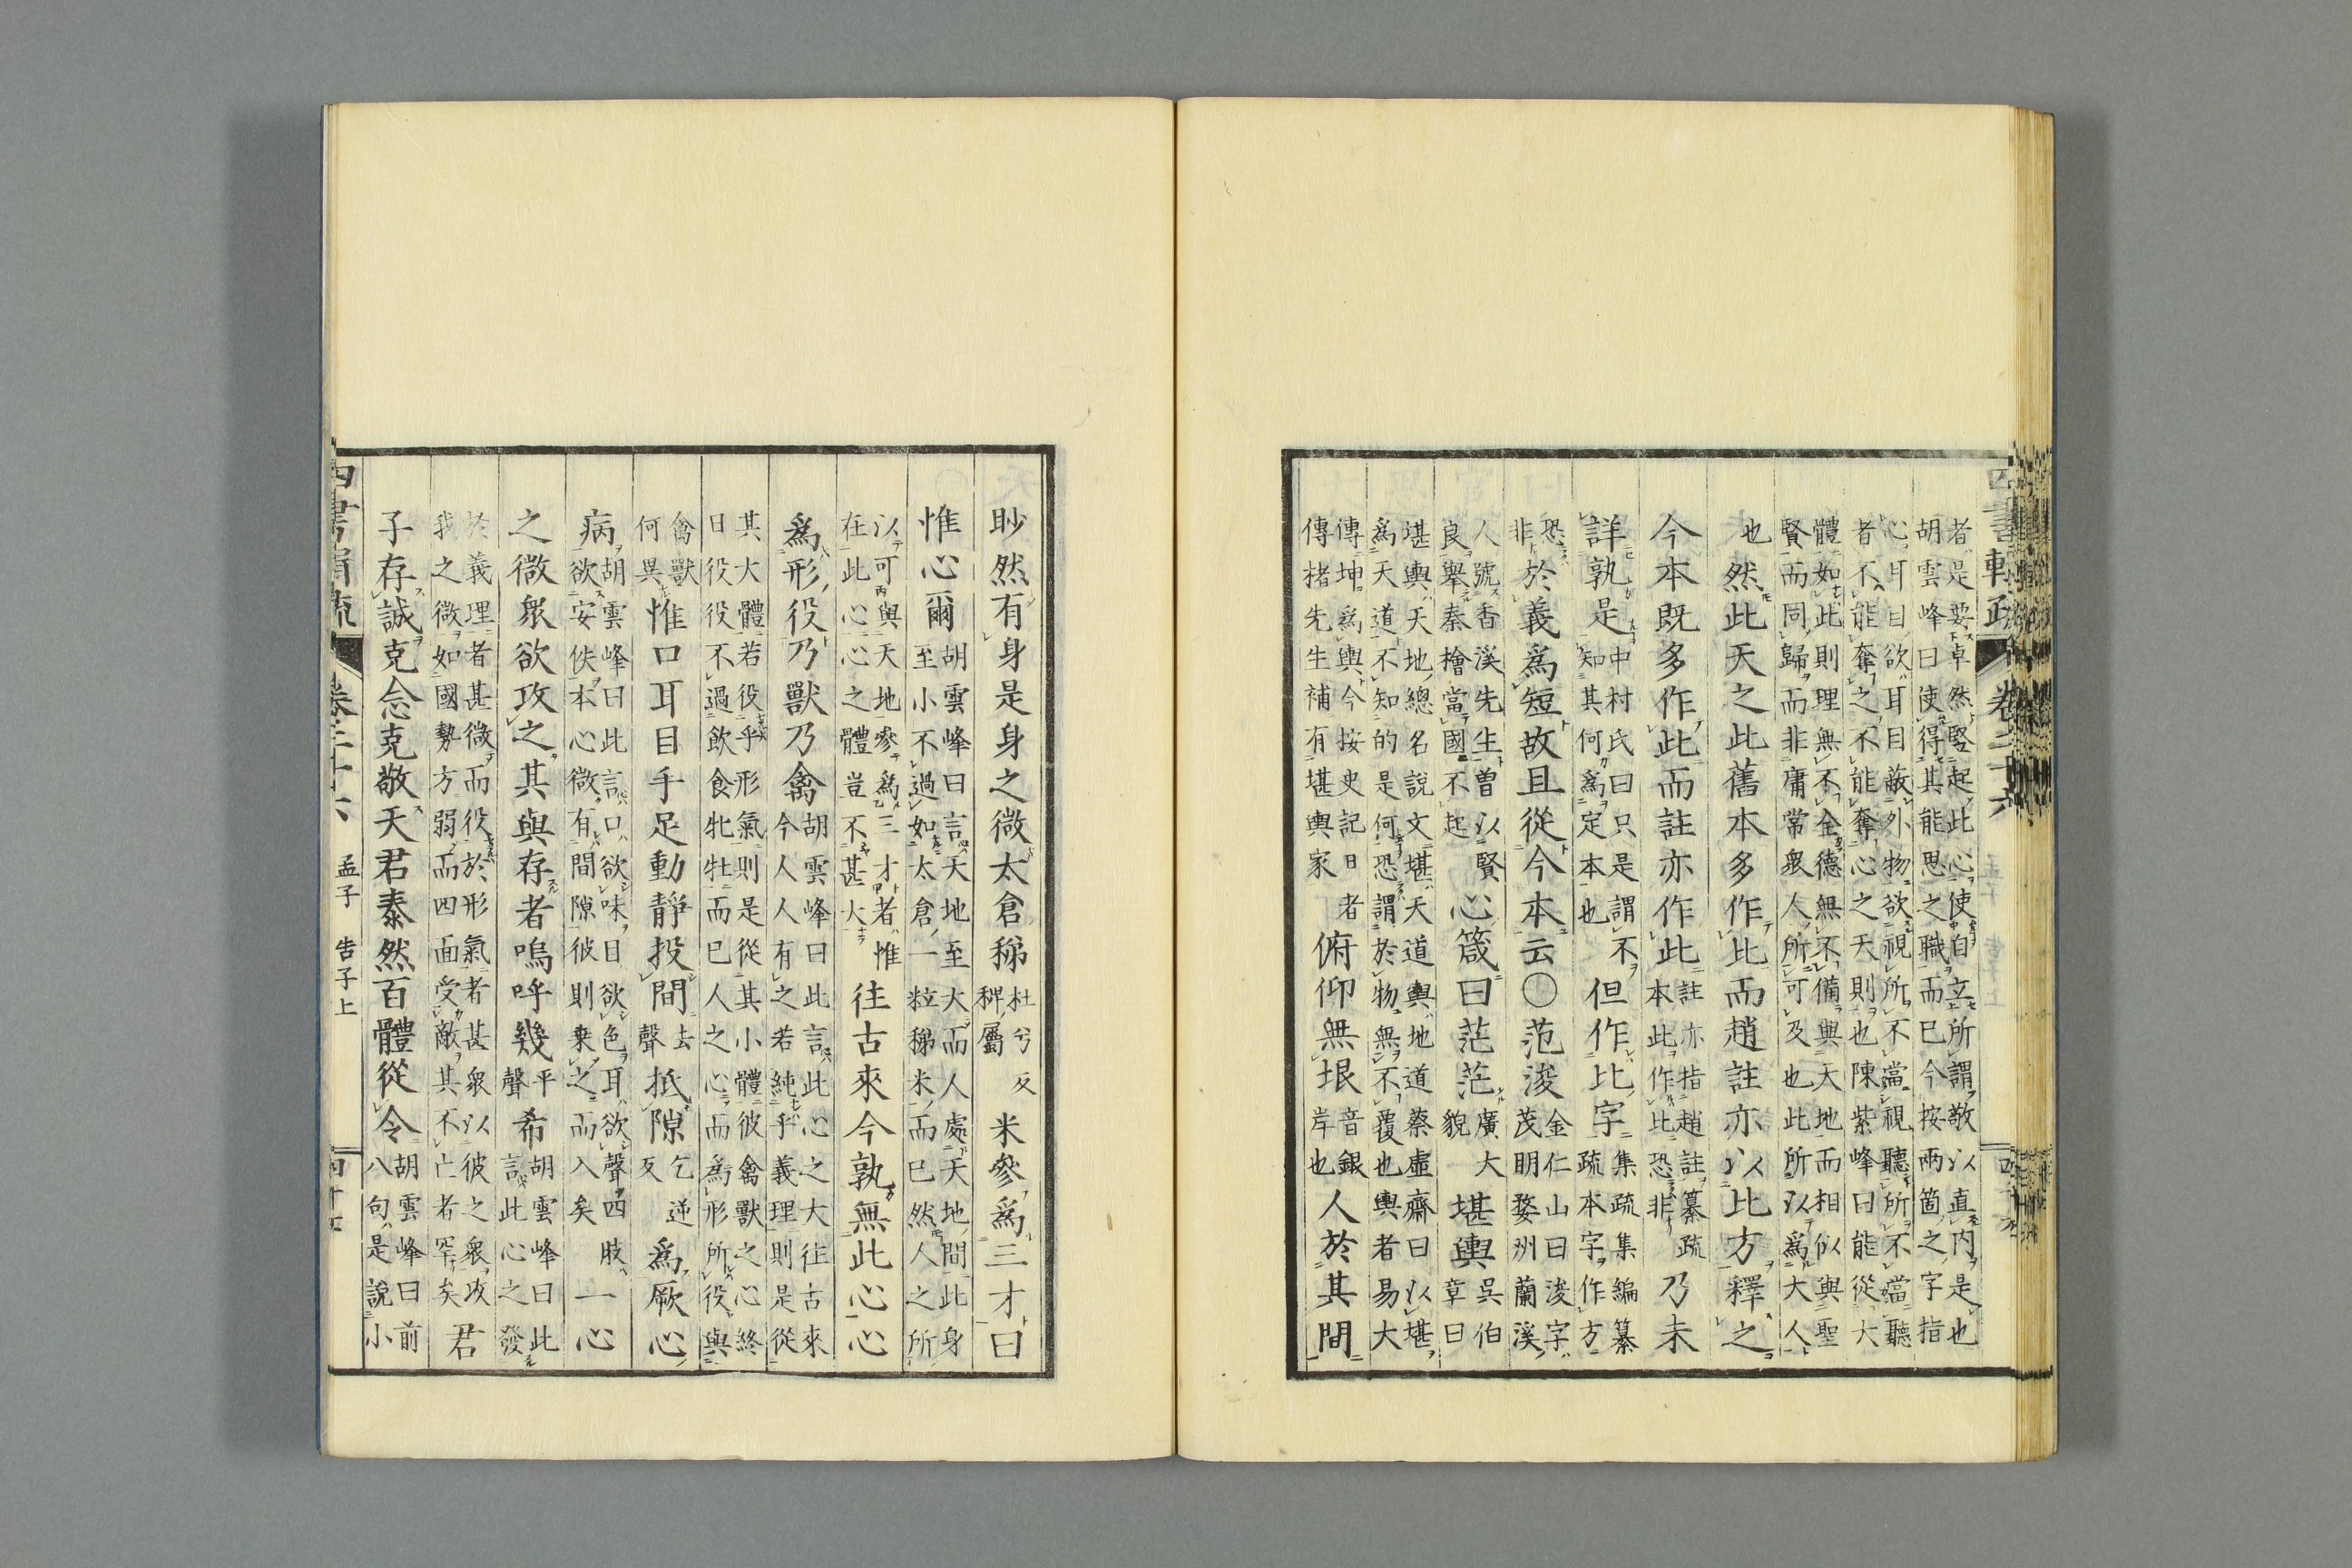 者是要卓然堅起此心使自立所謂敬以直内是也
胡雲峰曰使得其能思之職而已今按兩箇之字指
心耳目欲耳目蔽外物欲視所不當視聽所不當聽
者不能奪之不能奪心之天則也陳紫峰曰能從大
體如此則理無不全德無不備與天地而相似與聖
賢而同歸而非庸常衆人所可及也此所以爲大人
也然此天之此舊本多作比而趙註亦以比方釋之
今本既多作此而註亦作此註亦指趙註纂疏本此作比恐非乃未
詳孰是中村氏曰只是謂不知其何爲定本也但作比字集疏集編纂疏本字作方
恐非於義爲短故且從今本云〇范浚金仁山曰浚字茂明婺州蘭溪
人號香溪先生曾以賢良舉秦檜當國不起心箴曰茫茫廣大貌堪輿吳伯章曰
堪輿天地總名說文堪天道輿地道蔡虛齋曰以堪爲天道不知的是何恐謂於物無不覆也輿者易大
傳坤爲輿今按史記日者傳楮先生補有堪輿家俯仰無垠音銀岸也人於其間
眇然有身是身之微太倉稊杜兮反稗屬米參爲三才曰
惟心爾胡雲峰曰言天地至大而人處天地間此身至小不過如太倉一粒稊米而已然人之所
以可與天地參爲三才者惟在此心心之體豈不甚大往古來今孰無此心心
爲形役乃獸乃禽胡雲峰曰此言此心之大往古來今人人有之若純乎義理則是從
其大體若役乎形氣則是從其小體彼禽獸之心終日役役不過飲食牝牡而已人之心而爲形所役與
禽獸何異惟口耳目手足動靜投間去聲抵隙乞逆反爲厥心
病胡雲峰曰此言口欲味目欲色耳欲聲四肢欲安佚本心微有間隙彼則乘之而入矣一心
之微衆欲攻之其與存者嗚呼幾平聲希胡雲峰曰此言此心之發
於義理者甚微而役於形氣者甚衆以彼之衆攻我之微如國勢方弱而四面受敵其不亡者罕矣君
子存誠克念克敬天君泰然百體從令胡雲峰曰前八句是說小
四書
卷二十六
孟子 告子上